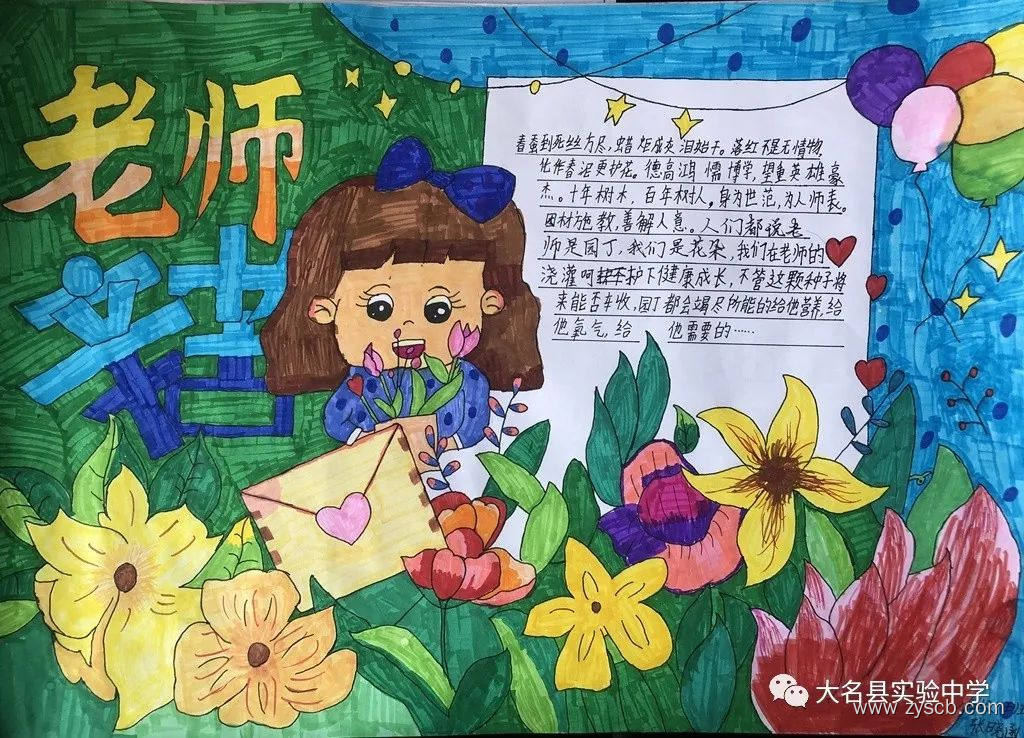 老师
节
春蚕到死丝方尽,蜡炬成灰泪始干。落红不是无情物,
化作春泥更护花。德高鸿儒博学,望重英雄豪
杰。十年树木,百年树人。身为世范,为人师表。
因材施教,善解人意。人们都说老
师是园丁,我们是花朵,我们在老师的
浇灌呵护下健康成长,不管这颗种子将
来能否丰收,园丁都会竭尽所能的给他营养,给
他氧气,给 他需要的……
大名县实验中学
www.zyscb.com